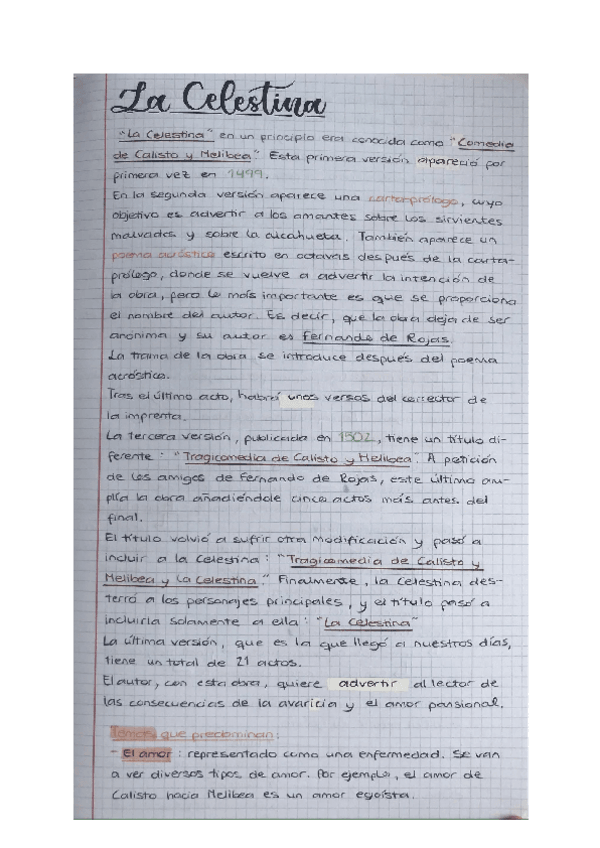 La Celestina
"La Celestina" en un principio era conocida como "Comedia
de Calisto y Melibea". Esta primera versión apareció por
primera vez en 1499.
En la segunda versión aparece una carta-prólogo, cuyo
objetivo es advertir a los amantes sobre los sirvientes
malvados y sobre la alcahueta. También aparece un
poema acróstico escrito en octavas después de la carta-
prólogo, donde se vuelve a advertir la intención de
la obra, pero lo más importante es que se proporciona
el nombre del autor. Es decir, que la obra deja de ser
anónima y su autor es Fernando de Rojas.
La trama de la obra se introduce después del poema
acróstico.
Tras el último acto, habrá unos versos del corrector de
la imprenta.
La tercera versión, publicada en 1502, tiene un título di-
ferente: "Tragicomedia de Calisto y Melibea". A petición
de los amigos de Fernando de Rojas, este último am-
plía la obra añadiéndole cinco actos más antes del
final.
El título volvió a sufrir otra modificación y pasó a
incluir a la Celestina: "Tragicomedia de Calisto y
Melibea y La Celestina". Finalmente, la Celestina des-
terró a los personajes principales, y el título pasó a
incluirla solamente a ella: "La Celestina"
La última versión, que es la que llegó a nuestros días,
tiene un total de 21 actos.
El autor, con esta obra, quiere advertir al lector de
las consecuencias de la avaricia y el amor pansional.
Temas que predominan:
- El amor: representado como una enfermedad. Se van
a ver diversos tipos de amor. Por ejemplo, el amor de
Calisto hacia Melibea es un amor egoísta.